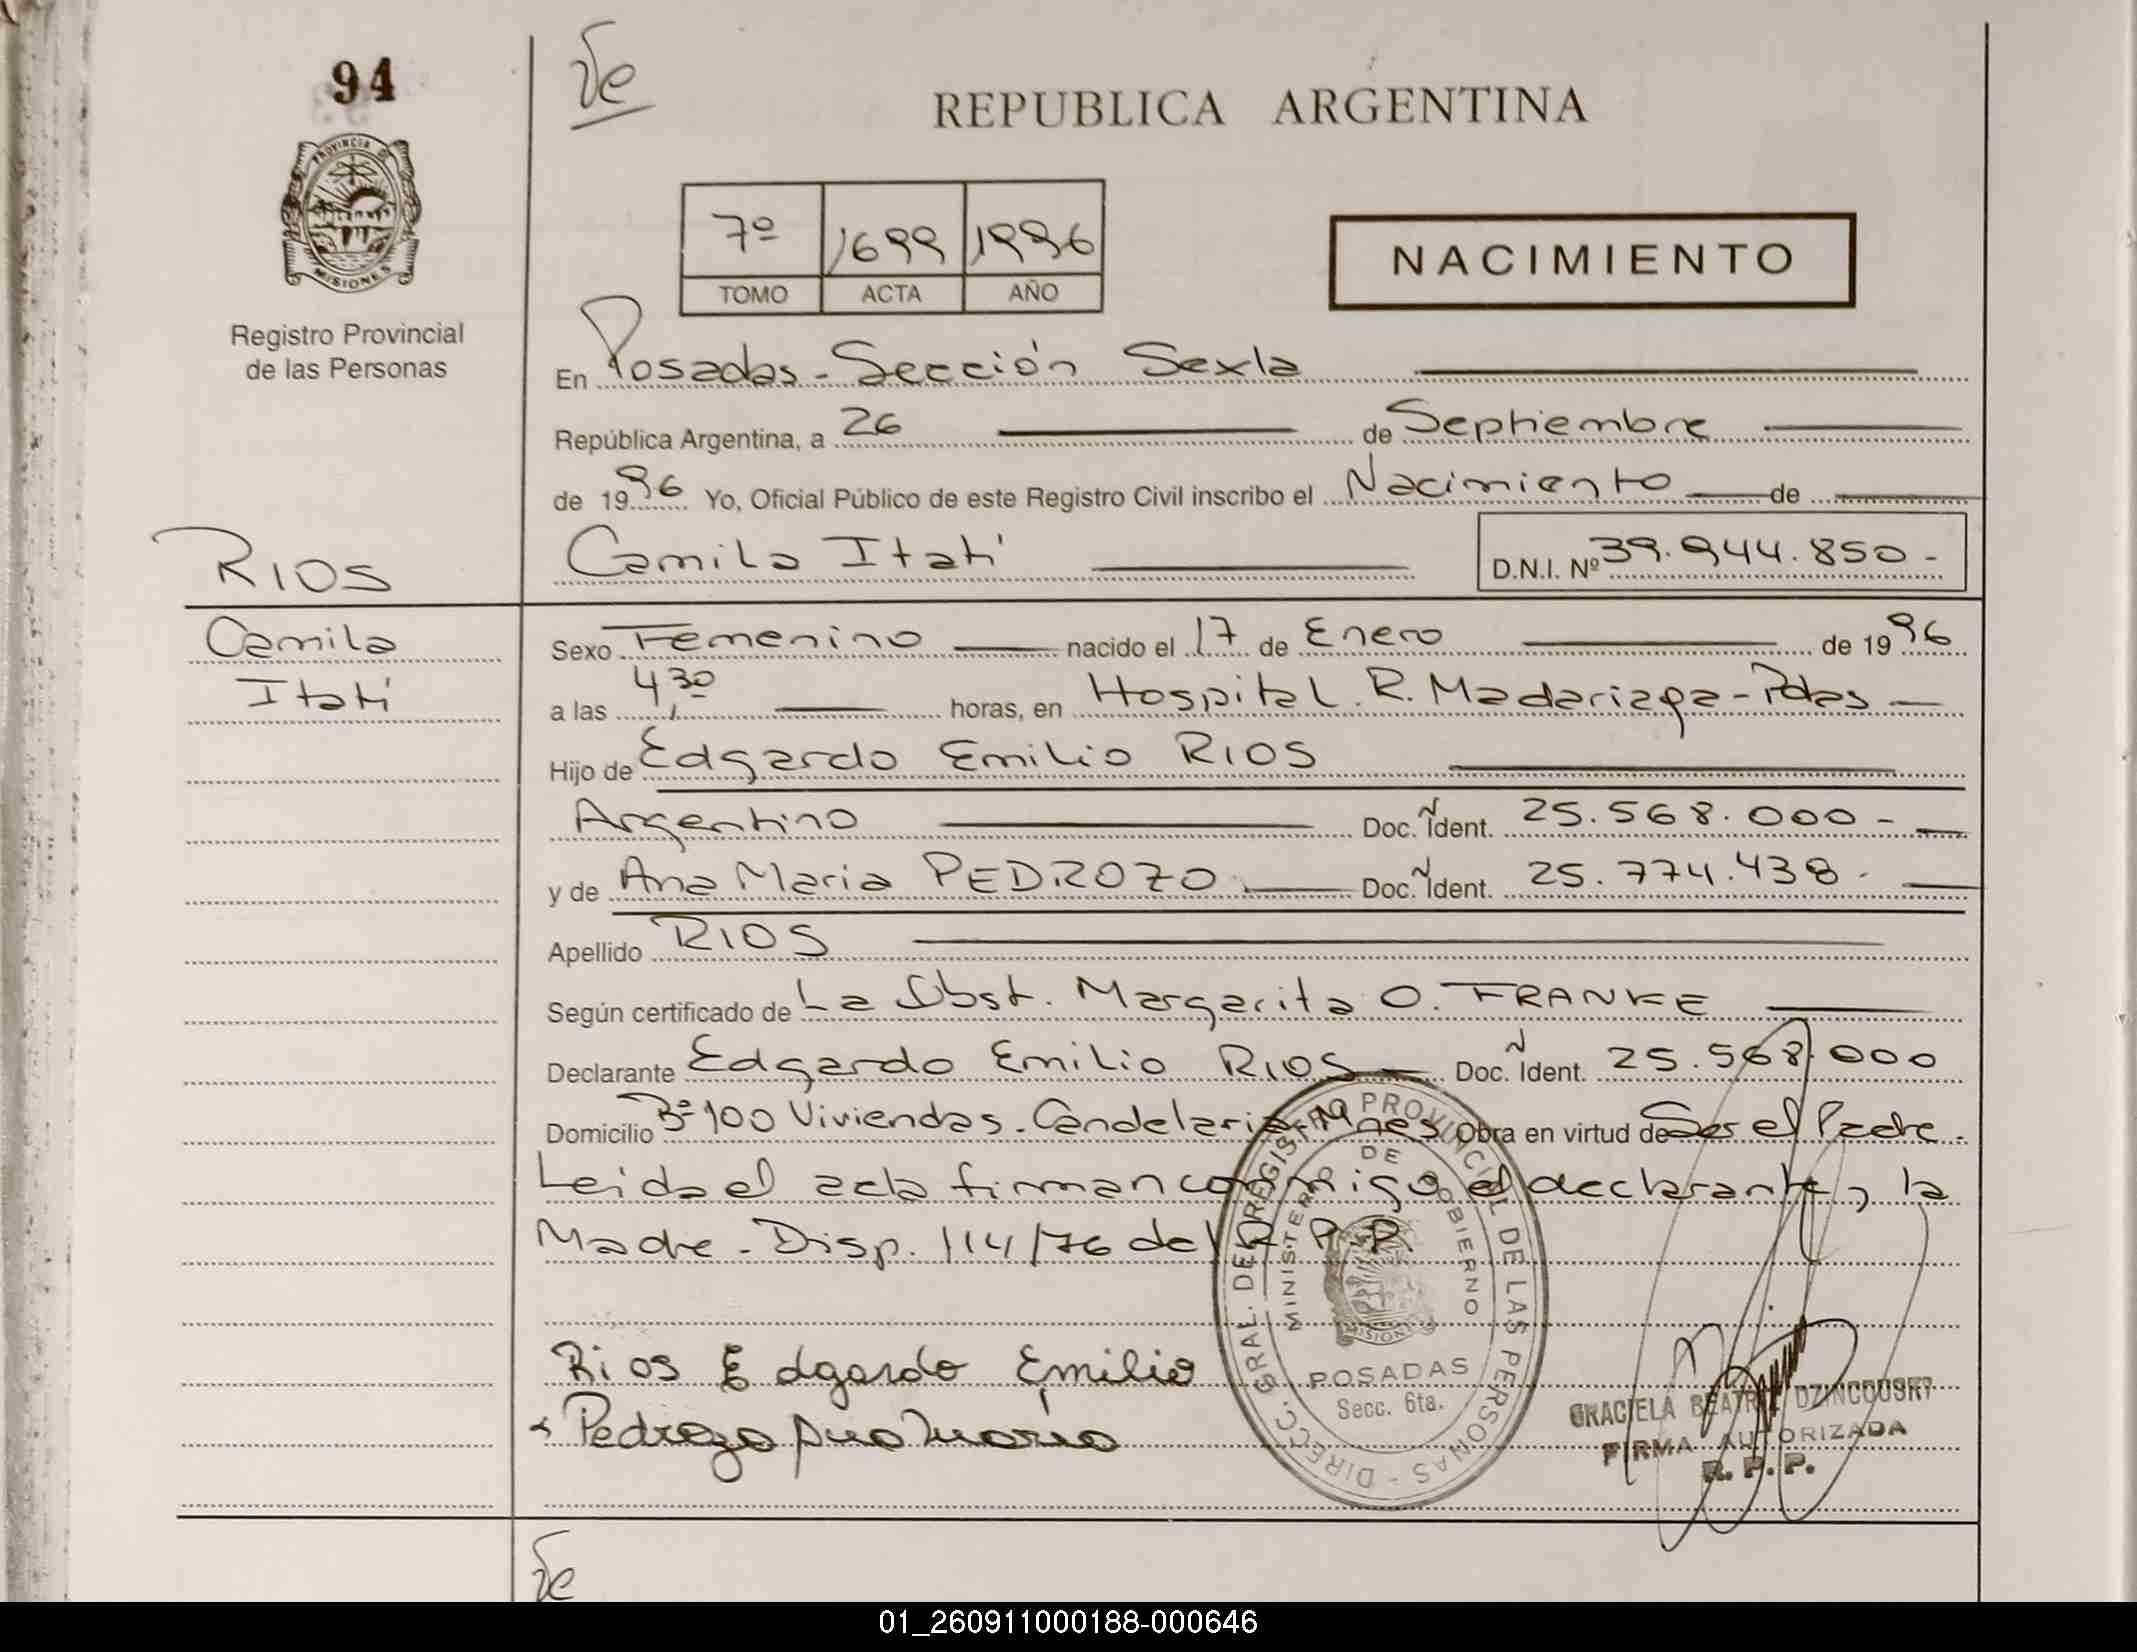 94
Ve
REPUBLICA ARGENTINA
PROVINCIA D MISIONES
Registro Provincial
de las Personas
7º 1699 1996
TOMO ACTA AÑO
NACIMIENTO
En Posadas - Sección Sexta
República Argentina, a 26 de Septiembre
de 1996 Yo, Oficial Público de este Registro Civil inscribo el Nacimiento de
Camila Itatí D.N.I. Nº 39.944.850-
RIOS
Camila
Itatí
Sexo Femenino nacido el 17 de Enero de 1996
a las 4,30 horas, en Hospital R. Madariaga - Pdas
Hijo de Edgardo Emilio RIOS
Argentino Doc. Ident. 25.568.000-
y de Ana Maria PEDROZO Doc. Ident. 25.774.438-
Apellido RIOS
Según certificado de La Obst. Margarita O. FRANKE
Declarante Edgardo Emilio RIOS Doc. Ident. 25.568.000
Domicilio Bº 100 Viviendas. Candelaria - Mnes Obra en virtud de Ser el Padre.
Leida el acta firman conmigo el declarante, la
Madre - Disp. 114/76 del R.P.P.
Rios Edgardo Emilio
Pedrozo Ana Maria
DIRECC. GRAL. DEL REGISTRO PROVINCIAL DE LAS PERSONAS
MINISTERIO DE GOBIERNO
MISIONES
POSADAS
Secc. 6ta.
GRACIELA BEATRIZ
FIRMA AUTORIZADA
R. P. P.
Ve
01_260911000188-000646